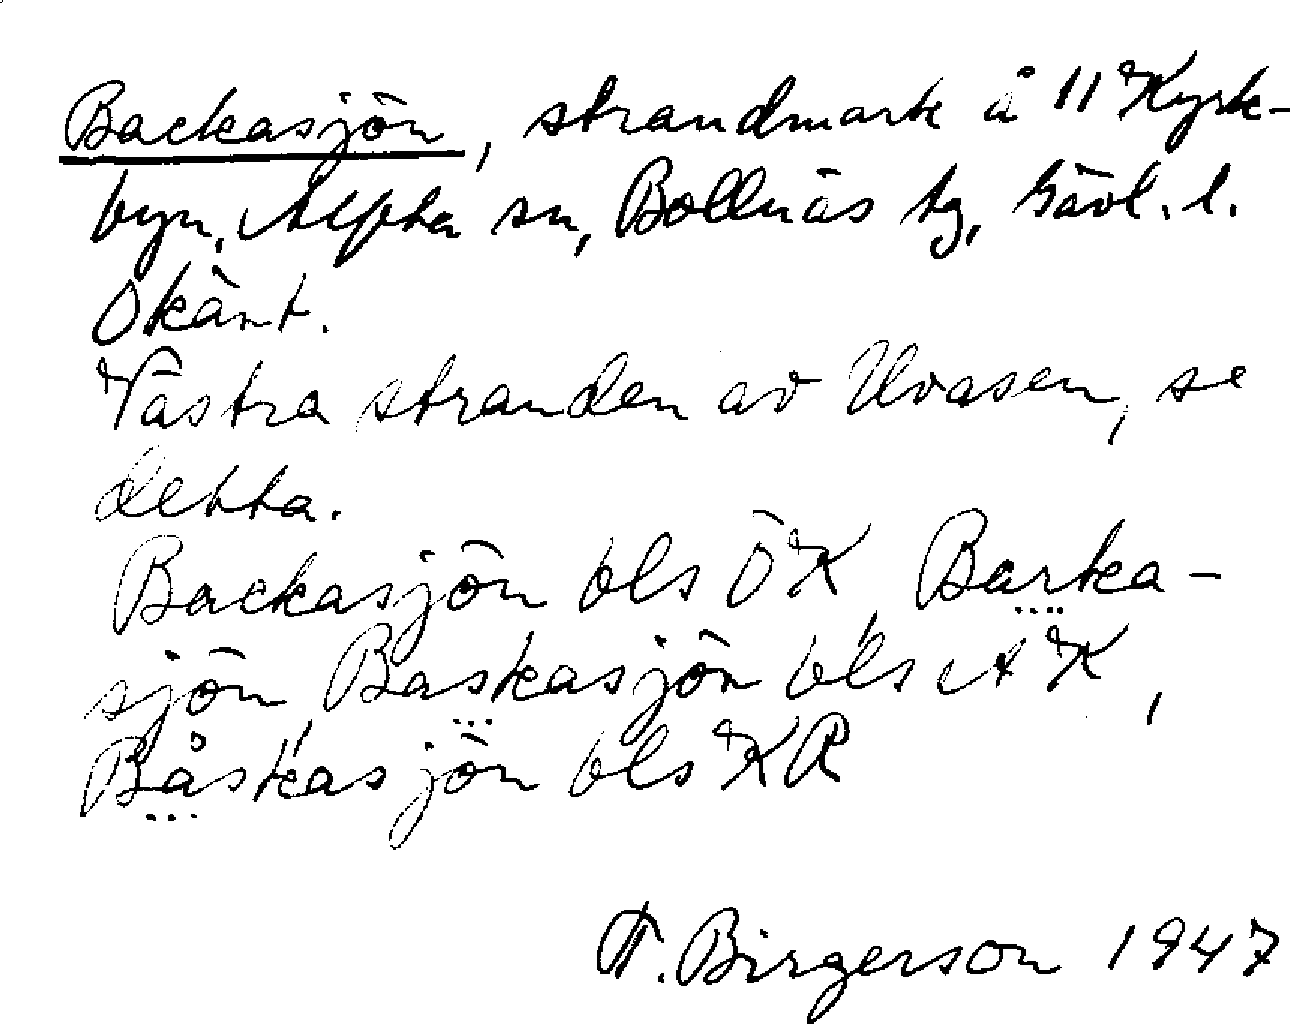 Backasjön, strandmark å 11 Kyrk-
byn, Alfta sn, Bollnäs tg, Gävl. l.
Okänt.
Västra stranden av Uvasen, se
detta.
Backasjön bls ÖK, Barka-
sjön, Baskasjön bls AK,
Båskasjön bls KR
T. Birgerson 1947